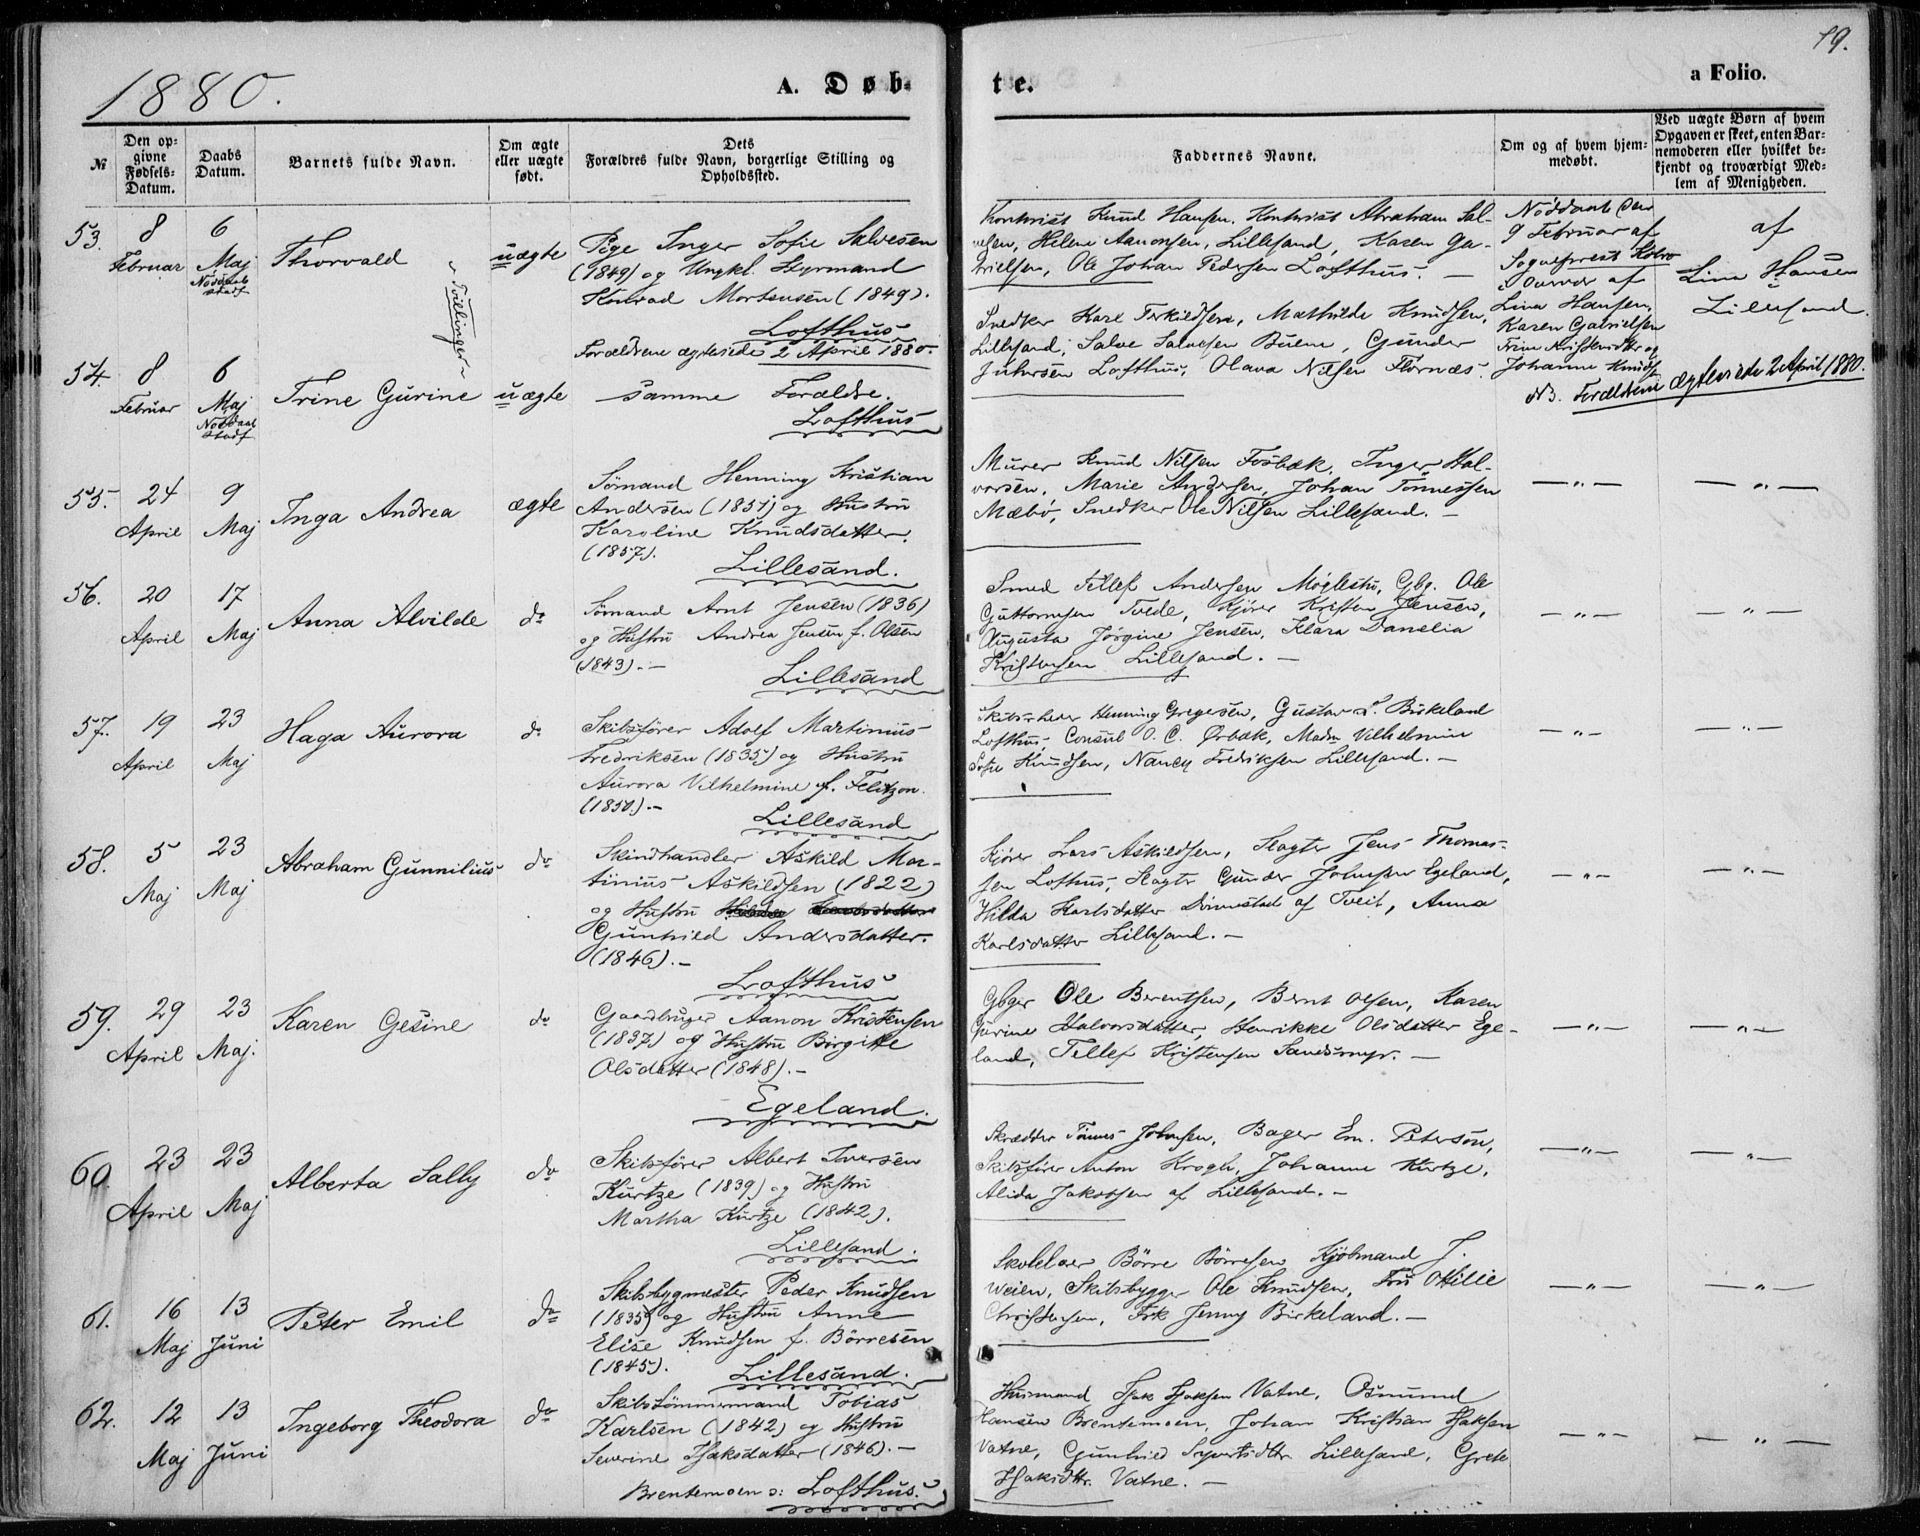 1880.
A. Døb-
te.
19.
a Folio.
№
Den op-
givne
Fødsels-
Datum.
Daabs
Datum.
Barnets fulde Navn.
Om ægte
eller uægte
født.
Dets
Forældres fulde Navn, borgerlige Stilling og
Opholdssted.
Faddernes Navne.
Om og af hvem hjem-
medøbt.
Ved uægte Børn af hvem
Opgaven er skeet, enten Bar-
nemoderen eller hvilket be-
kjendt og troværdigt Med-
lem af Menigheden.
53.
8
Februar
6
Maj
Nöddaab
stadf
Thorvald
Tvilinger
uægte
Pige Inger Sofie Salvesen
(1849) og Ungkl. Styrmand
Konrad Mortensen (1849).
Lofthus
Forældrene ægteviede 2 April 1880.
Kontorist Knud Hansen, Kontorist Abraham Sal-
vesen, Helene Aanonsen, Lillesand, Karen Ga-
brielsen, Ole Johan Pedersen Lofthus. —
Nöddaab den
9 Februar af
Sogneprest
Overvær af
Lina Hansen,
Karen Gabrielsen
Trine Kristensdtter og
Johanne Knuds
af
Lina Hansen
Lillesand.
54.
8
Februar
6
Maj
Nöddaab
stadf
Trine Gurine
uægte
samme Forældre.
Lofthus
Snedker Karl Terkildsen, Mathilde Knudsen,
Lillesand, Salve Salvesen Buene, Gunder
Juhlsen Lofthus, Olava Nilsen Flörnæs.
NB. Forældrene ægteviede 2 April 1880.
55.
24
April
9
Maj
Inga Andrea
ægte
Sömand Henning Kristian
Andersen (1851) og Hustru
Karoline Knudsdatter.
(1857).
Lillesand.
Murer Knud Nilsen Fosbæk, Inger Hal-
vorsen, Marie Andersen, Johan Tönnessen
Mæbö, Snedker Ole Nilsen Lillesand. —
— „ —
— „ —
56.
20
April
17
Maj
Anna Alvilde
do
Sömand Arnt Jensen (1836)
og Hustru Andrea Jensen f. Olsen
(1843). —
Lillesand
Smed Tellef Andersen Möglestu, Gbg. Ole
Guttormsen Tvede, Kjörer Kristen Jensen,
Augusta Jörgine Jensen, Klara Danelia
Kristensen Lillesand. —
— „ —
— „ —
57.
19
April
23
Maj
Haga Aurora
do
Skibsförer Adolf Martinius
Fredriksen (1835) og Hustru
Aurora Vilhelmine f. Felitzon.
(1850). —
Lillesand
Skibsrheder Henning Gregersen, Gustav S. Birkeland
Lofthus, Consul O. C. Ørbæk, Madm Vilhelmine
Sofie Knudsen, Nancy Fredriksen Lillesand. —
— „ —
— „ —
58.
5
Maj
23
Maj
Abraham Gunnilius
do
Skindhandler Askild Mar-
tinius Askildsen (1822)
og Hustru
Gunhild Andersdatter.
(1846). —
Lofthus
Kjörer Lars Askildsen, Slagter Jens Thomas-
sen Lofthus, Slagter Gunder Johnsen Egeland,
Hilda Karlsdatter Dönnestad af Tveit, Anna
Karlsdatter Lillesand. —
— „ —
— „ —
59.
29
April
23
Maj.
Karen Gesine
do
Gaardbruger Aanon Kristensen
(1837) og Hustru Birgitte
Olsdatter (1848). —
Egeland.
Gbger Ole Berentsen, Bernt Olsen, Karen
Gurine Halvorsdatter, Henrikke Olsdatter Ege-
land, Tellef Kristensen Sandsmyr. —
— „ —
— „ —
60.
23
April
23
Maj
Alberta Sally
do
Skibsförer Albert Iversen
Kurtze (1839) og Hustru
Martha Kurtze (1842).
Lillesand.
Skrædder Tönnes Johnsen, Bager Em. Petersön,
Skibsförer Anton Krogh, Johanne Kurtze,
Alida Jakobsen af Lillesand. —
— „ —
— „ —
61.
16
Maj
13
Juni
Peter Emil
do
Skibsbygmester Peder Knudsen
(1835) og Hustru Anne
Elise Knudsen f. Börresen
(1845).
Lillesand.
Skolelærer Börre Börresen Kjöbmand J.
Weien, Skibsbygger Ole Knudsen, Fru Ottilie
Christensen, Frk Jenny Birkeland. —
— „ —
— „ —
62.
12
Maj
13
Juni
Ingeborg Theodora
do
Skibstömmermand Tobias
Karlsen (1842) og Hustru
Severine Isaksdatter (1846). —
Brentemoen s: Lofthus.
Husmand Isak Isaksen Vatne, Osmund
Hansen Brentemoen, Johan Kristian Isaksen
Vatne, Gunhild Syvertsdtr Lillesand, Grete
Isaksdtr. Vatne. —
— „ —
— „ —